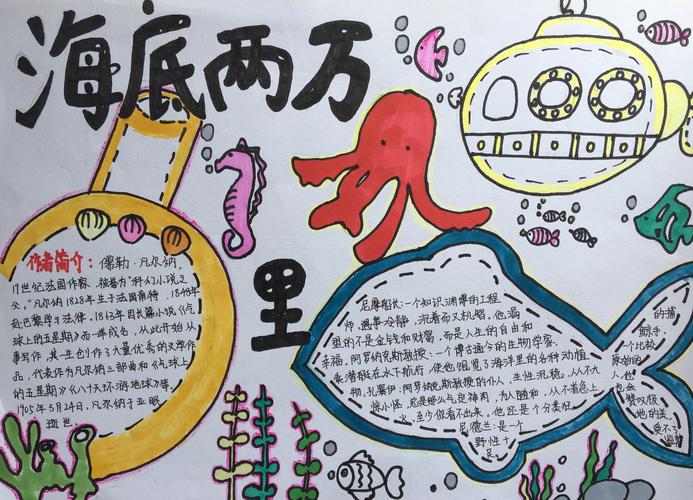 海底两万
里
作者简介：儒勒·凡尔纳，
19世纪法国作家，被誉为"科幻小说之
父"。凡尔纳1828年生于法国南特，1848年
赴巴黎学习法律。1863因长篇小说《气
球上的五星期》而一举成名，从此开始从
事写作，其一生创作了大量优秀的文学作
品，代表作为凡尔纳三部曲和《气球上
的五星期》《八十天环游地球》等。
1905年3月24日，凡尔纳于亚眠
逝世。
尼摩船长：一个知识渊博的工程
师，遇事冷静，沉着而又机智，他渴
望的不是金钱和财富，而是人生的自由和
幸福。阿罗纳克斯教授：一个博古通今的生物学家，
乘潜艇在水下航行，使他饱览了海洋里的各种动植
物。孔塞伊：阿罗纳克斯教授的仆人，生性沉稳，从不大
惊小怪，总是那么气定神闲，为人随和，从不着急上
火，至少你看不出来。他还是个分类狂
尼德兰：是一个
野性十
足
的捕
鲸手，
一个比较
原始的
人，他
也会
赞叹极
地的美，
受不了